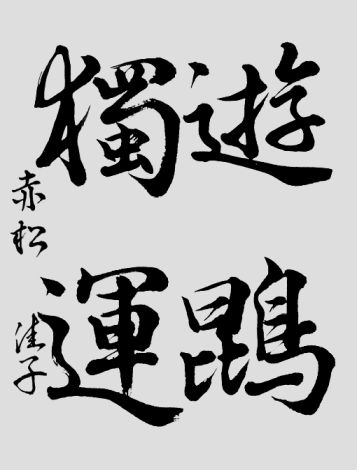 遊鵾
獨運
赤松佳子